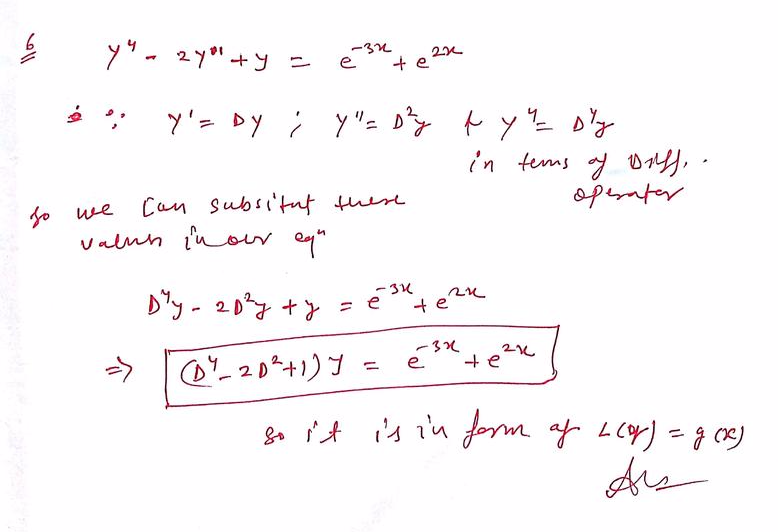 6 y⁴ - 2y'' + y = e^-3x + e^2x
∵ y' = Dy ; y'' = D²y & y⁴ = D⁴y
in tems of Diff.
operator
so we can subsitut these
values in our eqⁿ
D⁴y - 2D²y + y = e^-3x + e^2x
⇒ (D⁴ - 2D² + 1) y = e^-3x + e^2x
so it is in form of L(y) = g(x)
Ans